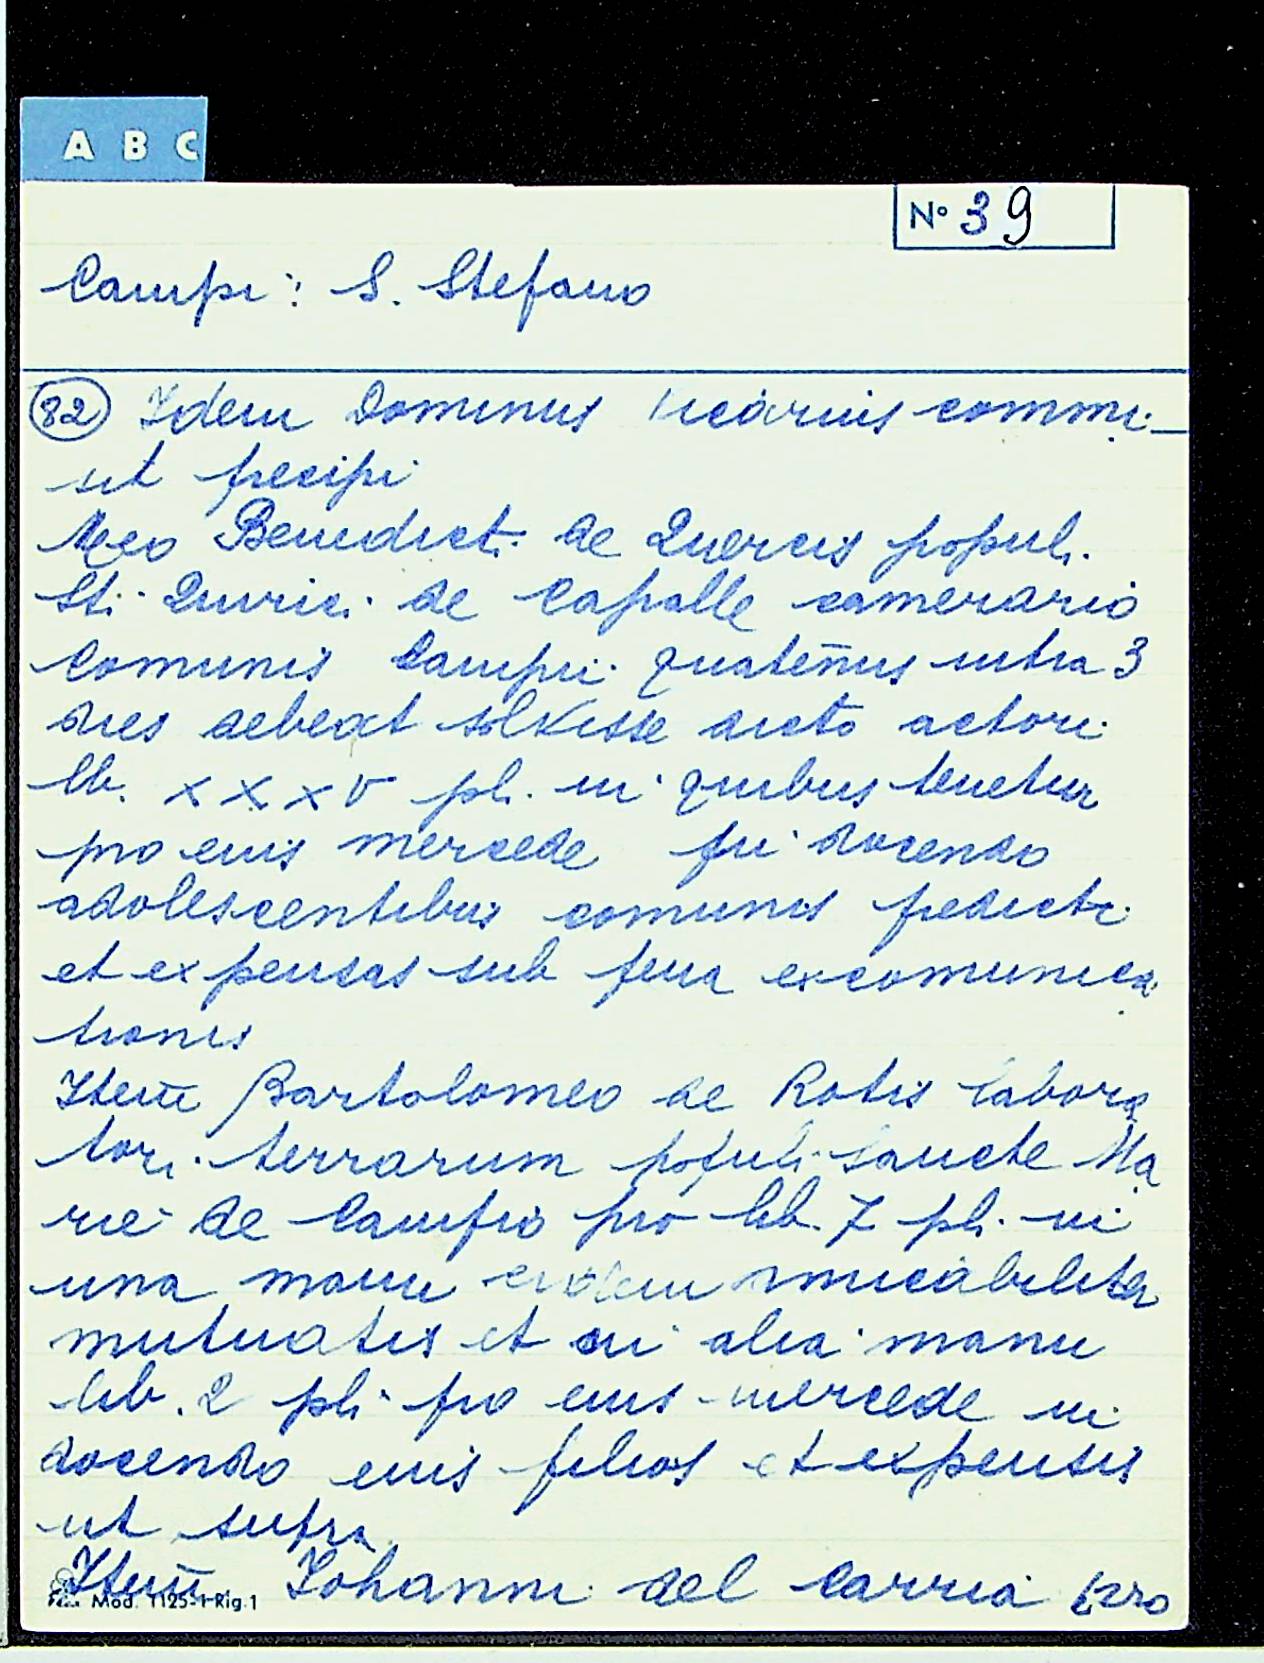 A B C
N° 39
Campi: S. Stefano
82 Idem Dominus Vicarius commi-
sit precipi
Meo Benedicti de Quercis populi
Sti. Quirici de Capalle camerario
Comunis Campi quatenus intra 3
dies debeat solvisse dicto actori
lb. XXXV pl. in quibus tenetur
pro eius mercede docendo
adolescentibus comunis predicti
et expensas sub pena excomunica
tionis
Item Bartolomeo de Rotis labora
tori terrarum populi Sancte Ma
rie de Campio pro lib. 7 pl. in
una manu eidem amicabiliter
mutuatis et in alia manu
lib. 2 pli pro eius mercede in
docendo eius filios et expensis
ut supra
Item Iohanni del Carria
Mod. 1125-1-Rig.1